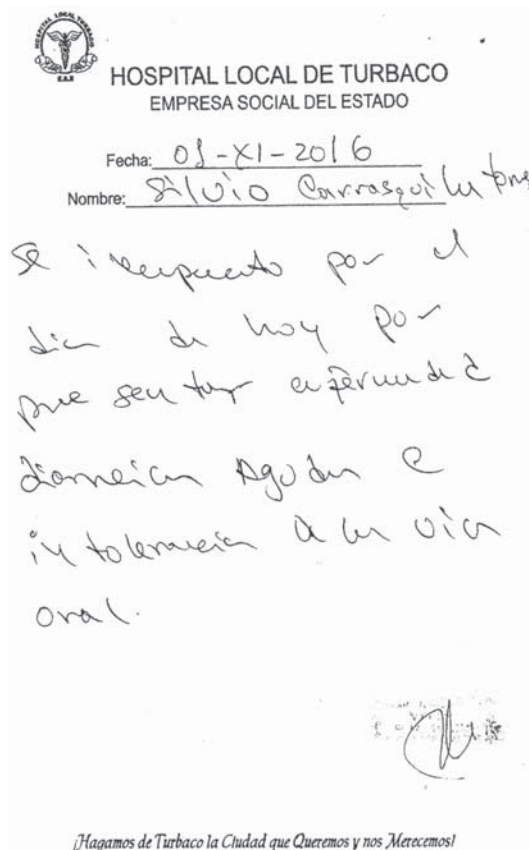 HOSPITAL LOCAL TURBACO
E.S.E
HOSPITAL LOCAL DE TURBACO
EMPRESA SOCIAL DEL ESTADO
Fecha: 01-XI-2016
Nombre: Silvio Carrasquilla
Se por el
dia de hoy por
presentar enfermedad
diarreica Aguda e
intolerancia a la via
oral.
¡Hagamos de Turbaco la Ciudad que Queremos y nos Merecemos!